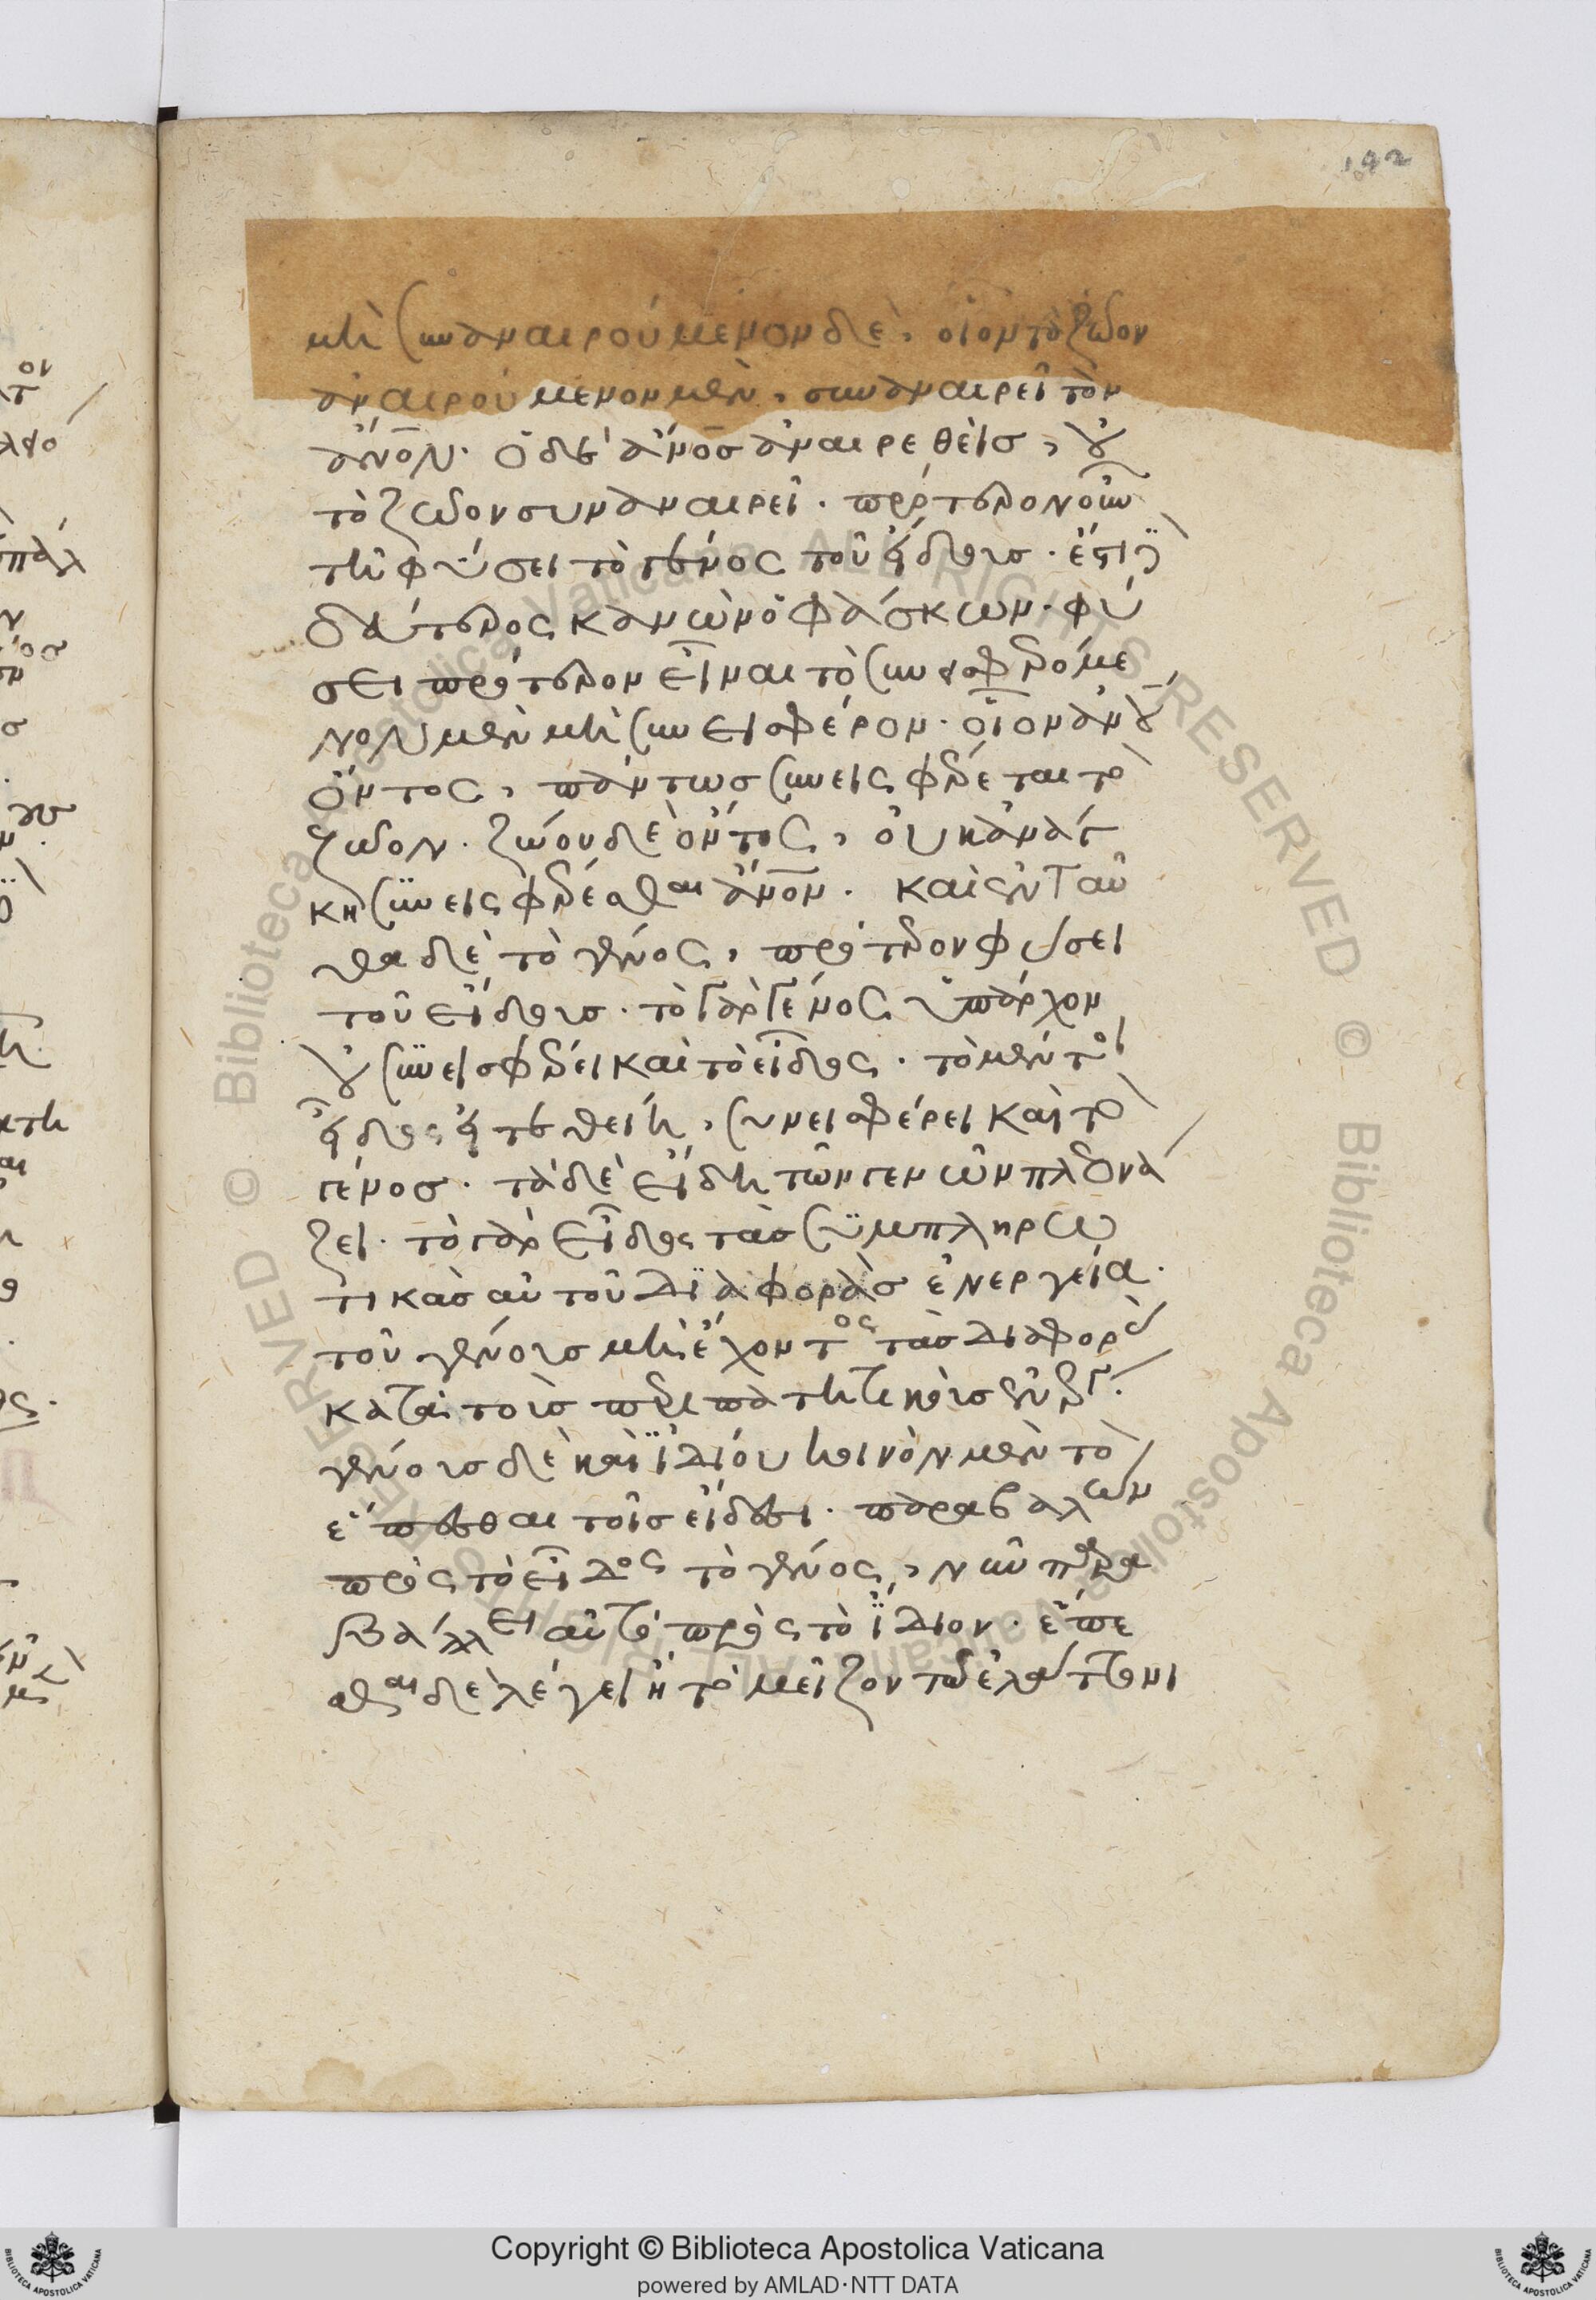 192
μὴ συναναιρούμενον δὲ, οἷον τὸ ζῶον
ἀναιρούμενον μὲν, συναναιρεῖ τὸν
ἄνον. ὁ δὲ ἄνος ἀναιρεθεὶς, οὐ
τὸ ζῶον συναναιρεῖ. πρότερον οὖν
τῆ φύσει τὸ γένος τοῦ εἴδους. ἔστι
δεύτερος κανὼν ὁ φάσκων. φύ
σει πρότερον εἶναι τὸ συνεισφερόμε
νον μὲν μὴ συνεισφέρον. οἷον ἀνου
ὄντος, πάντως συνεισφέρεται τὸ
ζῶον. ζώου δὲ ὄντος, οὐκ ἀνάγ
κη συνεισφέρεσθαι ἄνον. καὶ ἐνταῦ
θα δὲ τὸ γένος, πρότερον φύσει
τοῦ εἴδους. τὸ γὰρ γένος ὑπάρχον
οὐ συνεισφέρει καὶ τὸ εἶδος. τὸ μέντοι
εἶδος εἰ τεθείη, συνεισφέρει καὶ τὸ
γένος. τὰ δὲ εἴδη τῶν γενῶν πλεονά
ζει. τὸ γὰρ εἶδος τὰς συμπληρω
τικὰς αὐτοῦ διαφορὰς ἐνεργεία.
τοῦ γένους μὴ ἔχοντος τὰς διαφορὰς
κατὰ τοὺς περιπατητικοὺς ἐνεργ.
γένους δὲ καὶ ἰδίου κοινὸν μὲν τὸ
ἕπεσθαι τοῖς εἴδεσι. παραβαλὼν
πρὸς τὸ εἶδος τὸ γένος, νῦν παρα
βάλλει αὐτὸ πρὸς τὸ ἴδιον. ἕπε
σθαι δὲ λέγει ἢ τὸ μεῖζον τῶ ἐλάττονι
Copyright © Biblioteca Apostolica Vaticana
powered by AMLAD·NTT DATA